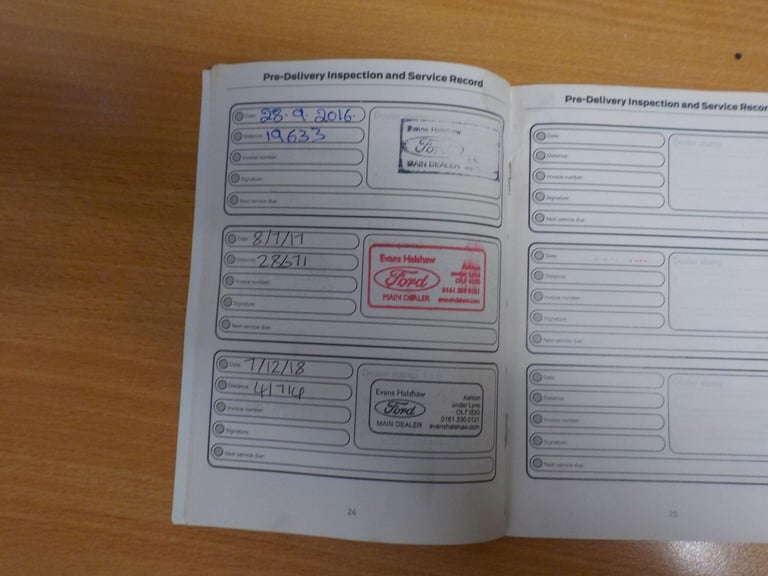 Pre-Delivery Inspection and Service Record
Date: 28.9.2016.
Distance: 19633
Invoice number:
Signature:
Next service due:
Evans Halshaw
Ford
MAIN DEALER
Date: 8/7/17
Distance: 28671
Invoice number:
Signature:
Next service due:
Evans Halshaw
Ford
MAIN DEALER
Ashton
under Lyne
evanshalshaw.com
Date: 7/12/18
Distance: 41714
Invoice number:
Signature:
Next service due:
Dealer stamp
Evans Halshaw
Ford
MAIN DEALER
Ashton
under Lyne
OL7 0DG
0161 330 0121
evanshalshaw.com
24
Pre-Delivery Inspection and Service Recor
Date:
Distance:
Invoice number:
Signature:
Next service due:
Dealer stamp
Date:
Distance:
Invoice number:
Signature:
Next service due:
Dealer stamp
Date:
Distance:
Invoice number:
Signature:
Next service due:
Dealer stamp
25